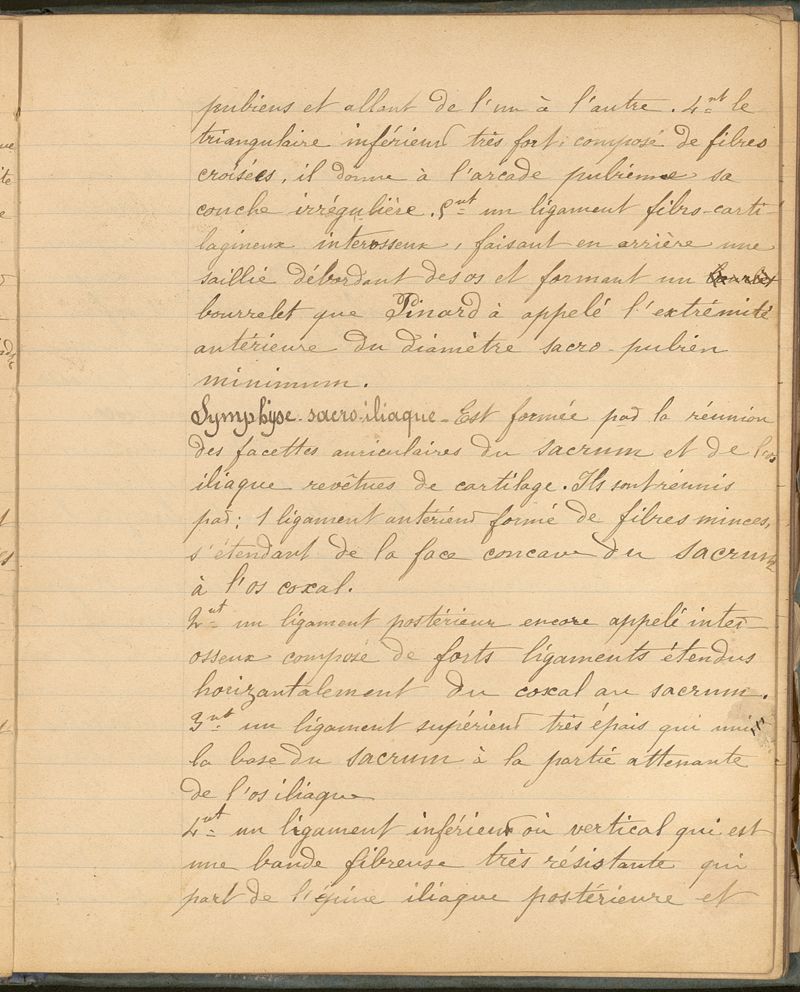 pubiens et allant de l'un à l'autre. 4nt le
triangulaire inférieur très fort, composé de fibres
croisées, il donne à l'arcade pubienne sa
couche irrégulière. 5nt un ligament fibro-carti-
lagineux interosseux, faisant en arrière une
saillie débordant des os et formant un
bourrelet que Pinard à appelé l'extrémité
antérieure du diamètre sacro-pubien
minimum.
Symphyse-sacro-iliaque - Est formée par la réunion
des facettes auriculaires du sacrum et de l'os
iliaque revêtues de cartilage. Ils sont réunis
par: 1 ligament antérieur formé de fibres minces,
s'étendant de la face concave du sacrum
à l'os coxal.
2nt un ligament postérieur encore appelé inter-
osseux composé de forts ligaments étendus
horizantalement du coxal au sacrum.
3nt un ligament supérieur très épais qui unit
la base du sacrum à la partie attenante
de l'os iliaque
4nt un ligament inférieur où vertical qui est
une bande fibreuse très résistante qui
part de l'épine iliaque postérieure et